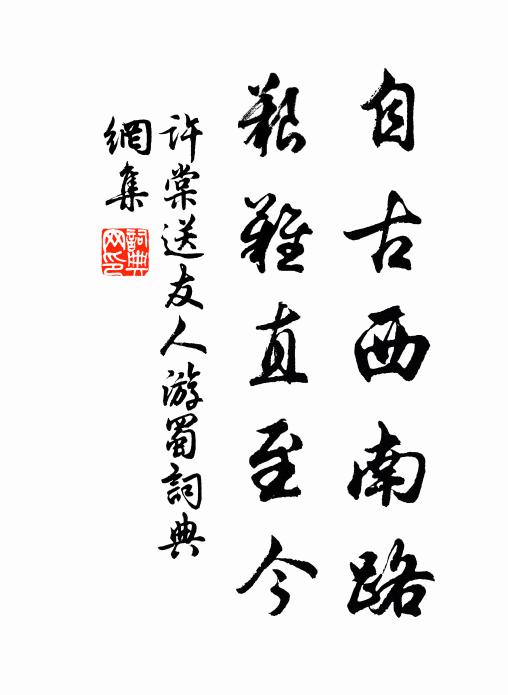 自古西南路
艱難直至今
許棠送友人游蜀詞典
網集
詞典
网印